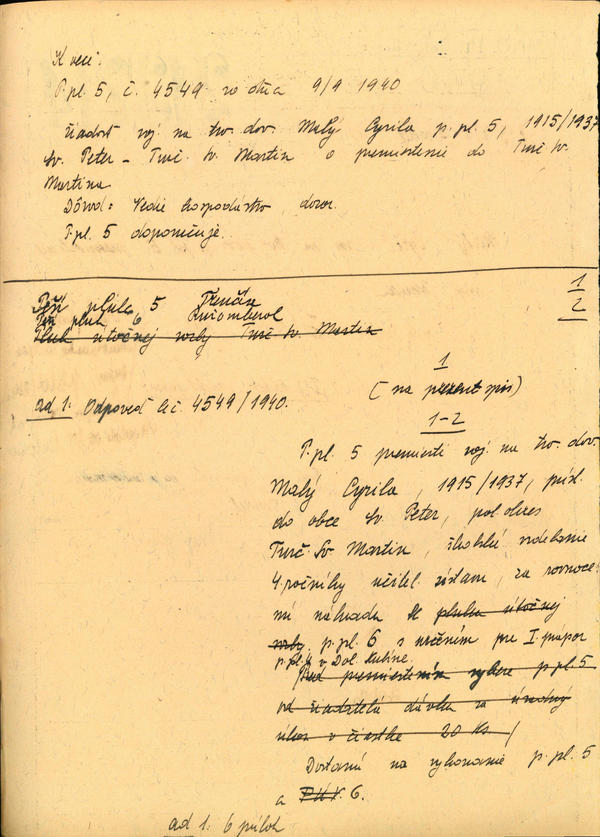 K veci:
P.pl. 5, č. 4549 zo dňa 9/9 1940
žiadosť voj. na trv. dov. Malý Cyrila p.pl. 5, 1915/1937
Sv. Peter – Turč. Sv. Martin o premiestenie do Turč. Sv.
Martina
Dôvod: Vedie hospodárstvo, dovoz.
P.pl. 5 doporučuje.
1
2
Peší pluk 5 Trenčín
Peší pluk 6 Ružomberok
Pluk útočnej vozby Turč. Sv. Martin
1
(na prezent. spis)
ad 1: Odpoveď k č. 4549/1940.
1-2
P.pl. 5 premiesti voj. na trv. dov.
Malý Cyrila, 1915/1937, prísl.
do obce Sv. Peter, pol. okres
Turč. Sv. Martin, školské vzdelanie
4 ročníky učitel. ústavu, za rovnocen
nú náhradu k pluku útočnej
vozby p.pl. 6 s určením pre I. prápor
p.pl. 4 v Dol. Kubíne.
Pred premiestením vybere p.pl. 5
od žiadateľa dávku za úradný
úkon v čiastke 20 Ks /
Dostanú na vykonanie p.pl. 5
a 6.
ad 1: 6 príloh